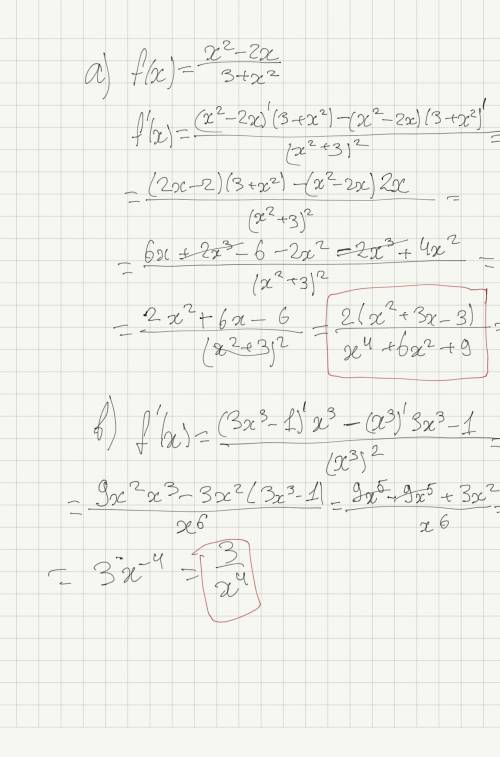 а) f(x) = (x² − 2x)/(3 + x²)
f'(x) = ((x² − 2x)'(3 + x²) − (x² − 2x)(3 + x²)')/(x² + 3)² =
= ((2x − 2)(3 + x²) − (x² − 2x) 2x)/(x² + 3)² =
= (6x + 2x³ − 6 − 2x² − 2x³ + 4x²)/(x² + 3)² =
= (2x² + 6x − 6)/(x² + 3)² = 2(x² + 3x − 3)/(x⁴ + 6x² + 9) =
в) f'(x) = ((3x³ − 1)' x³ − (x³)' 3x³ − 1)/(x³)² =
= (9x² x³ − 3x² (3x³ − 1))/x⁶ = (9x⁵ − 9x⁵ + 3x²)/x⁶ =
= 3x⁻⁴ = 3/x⁴